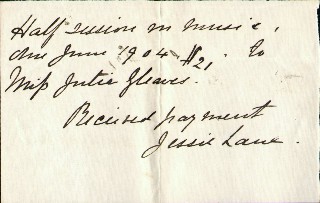 Half session in music,
due June 1904 $21. To
Miss Julie Gleaves.
Received payment
Jessie Lane.